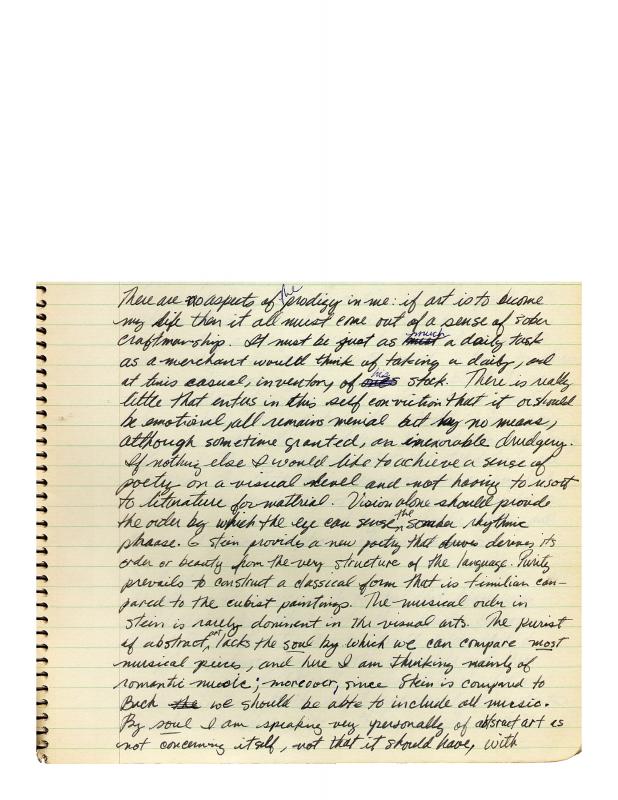 There are no aspects of the prodigy in me: if art is to become
my life then it all must come out of a sense of sober
craftmanship. It must be just as much a daily task
as a merchant would think of taking a daily, and
at times casual, inventory of his stock. There is really
little that enters in this self conviction that it or should
be emotional, all remains menial but by no means,
although sometime granted, an inexorable drudgery.
If nothing else I would like to achieve a sense of
poetry on a visual level and not having to resort
to literature for material. Vision alone should provide
the order by which the eye can sense the somber rhythmic
phrase. G Stein provides a new poetry that derives its
order or beauty from the very structure of the language. Purity
prevails to construct a classical form that is familiar com-
pared to the cubist paintings. The musical order in
Stein is rarely dominent in the visual arts. The purist
of abstract art lacks the soul by which we can compare most
musical pieces, and here I am thinking mainly of
romantic music; moreover, since Stein is compared to
Bach we should be able to include all music.
By soul I am speaking very personally of abstract art as
not concerning itself, not that it should have, with